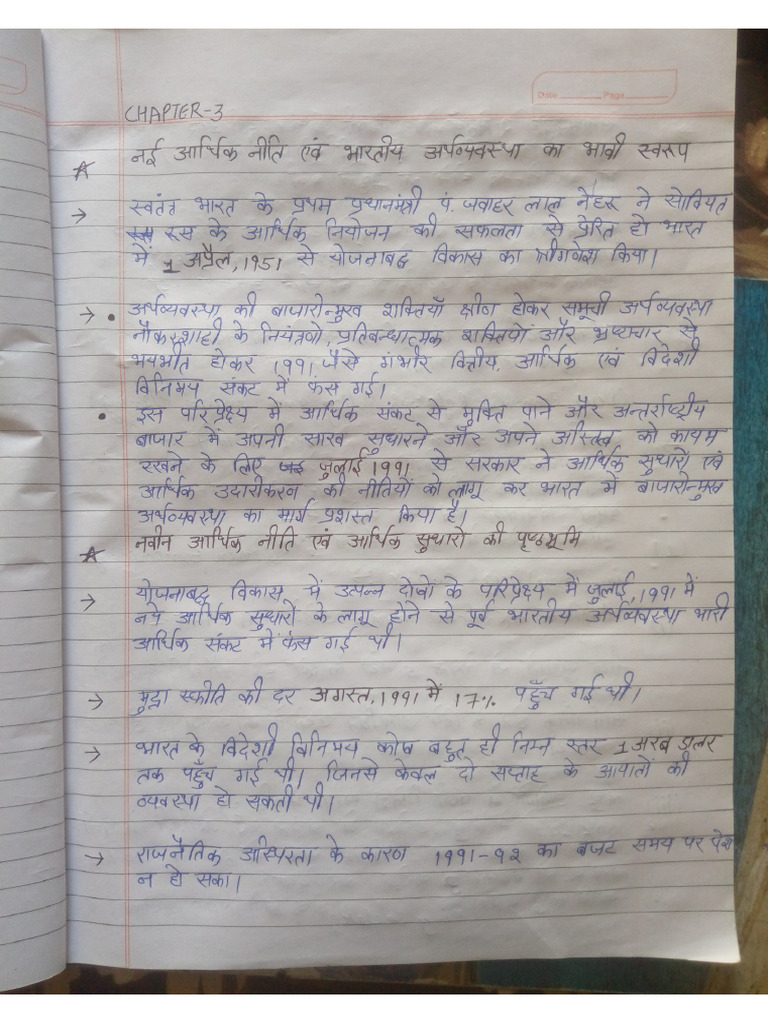 Date Page
CHAPTER-3
☆ नई आर्थिक नीति एवं भारतीय अर्थव्यवस्था का भावी स्वरूप
→ स्वतंत्र भारत के प्रथम प्रधानमंत्री पं. जवाहर लाल नेहरू ने सोवियत
रूस के आर्थिक नियोजन की सफलता से प्रेरित हो भारत
में 1 अप्रैल, 1951 से योजनाबद्ध विकास का श्रीगणेश किया।
→ • अर्थव्यवस्था की बाजारोन्मुख शक्तियाँ क्षीण होकर समूची अर्थव्यवस्था
नौकरशाही के नियंत्रणो, प्रतिबन्धात्मक शक्तियों और भ्रष्टाचार से
भयभीत होकर 1991 जैसे गंभीर वित्तीय, आर्थिक एवं विदेशी
विनिमय संकट में फंस गई।
• इस परिप्रेक्ष्य में आर्थिक संकट से मुक्ति पाने और अन्तर्राष्ट्रीय
बाजार में अपनी साख सुधारने और अपने अस्तित्व को कायम
रखने के लिए जुलाई 1991 से सरकार ने आर्थिक सुधारों एवं
आर्थिक उदारीकरण की नीतियों को लागू कर भारत में बाजारोन्मुख
अर्थव्यवस्था का मार्ग प्रशस्त किया है।
☆ नवीन आर्थिक नीति एवं आर्थिक सुधारो की पृष्ठभूमि
→ योजनाबद्ध विकास में उत्पन्न दोषों के परिप्रेक्ष्य में जुलाई, 1991 में
नये आर्थिक सुधारों के लागू होने से पूर्व भारतीय अर्थव्यवस्था भारी
आर्थिक संकट में फंस गई थी।
→ मुद्रा स्फीति की दर अगस्त, 1991 में 17% पहुँच गई थी।
→ भारत के विदेशी विनिमय कोष बहुत ही निम्न स्तर 1 अरब डालर
तक पहुँच गई थी। जिनसे केवल दो सप्ताह के आयातों की
व्यवस्था हो सकती थी।
→ राजनैतिक अस्थिरता के कारण 1991-92 का बजट समय पर पेश
न हो सका।